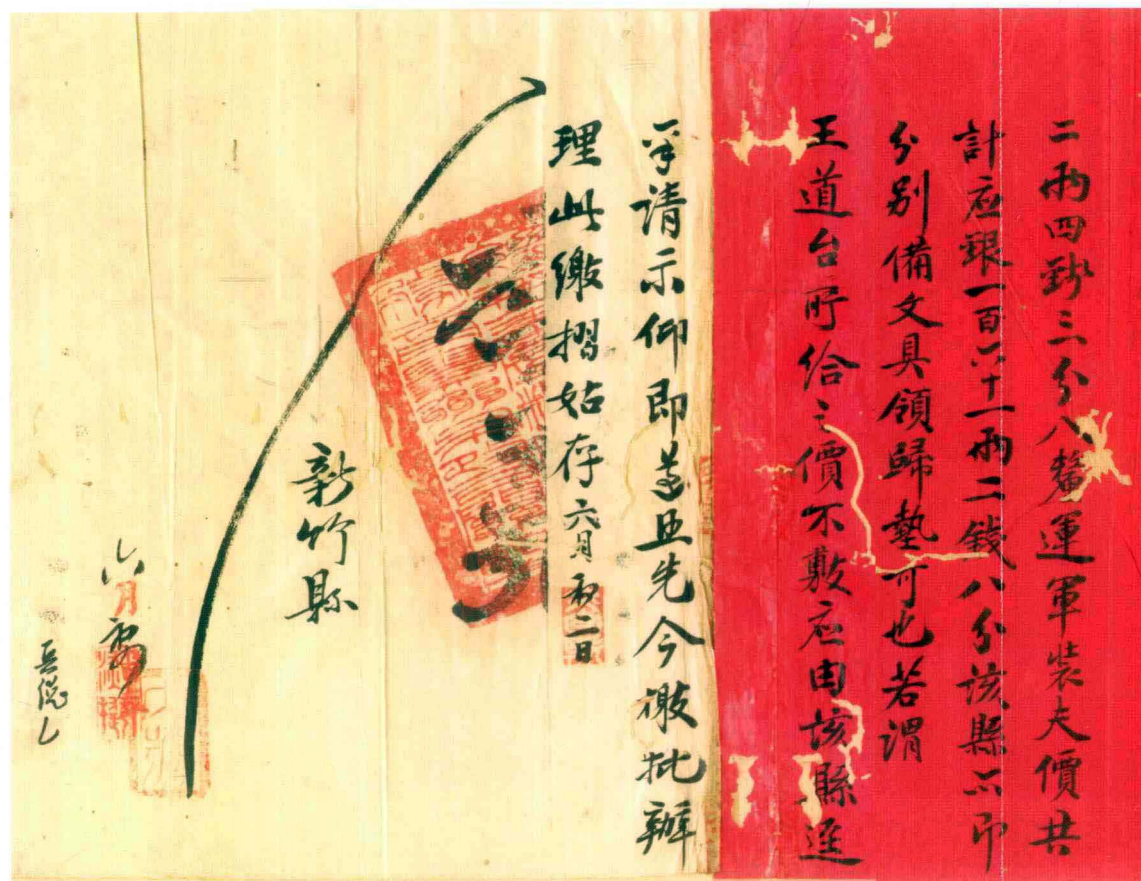 二兩四錢三分八釐運軍裝夫價共
計应銀一百六十一兩二錢八分该縣亦即
分别備文具領歸墊可也若谓
王道台所给之價不敷应由该縣逕
禀請示仰即遵照先今檄批辦
理此繳摺姑存六月初二日
新竹縣
六月